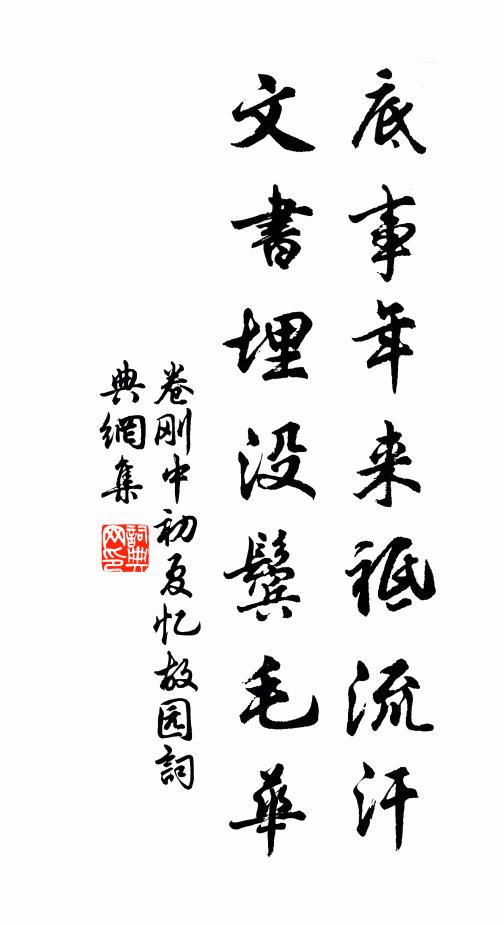 底事年来祗流汗
文書埋没鬓毛華
卷刚中初夏忆故园詞
典網集
詞典网印